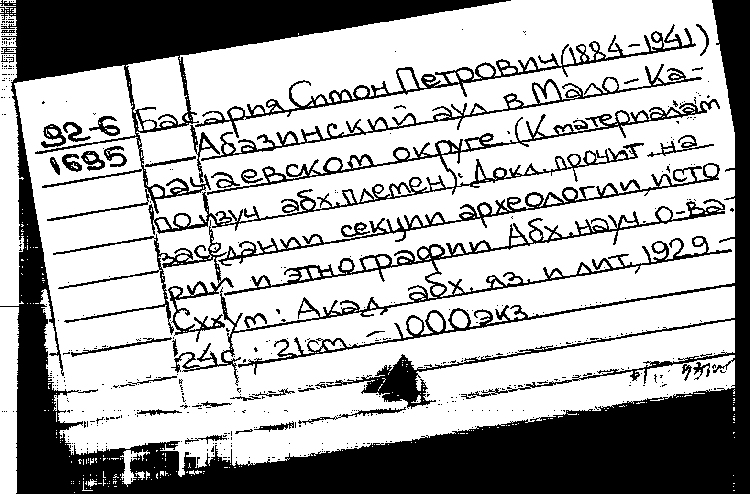 92-6
1695
Басария, Симон Петрович (1884-1941).
Абазинский аул в Мало-Ка-
рачаевском округе: (К материалам
по изуч. абх. племен): Докл., прочит. на
заседании секции археологии, исто-
рии и этнографии Абх. науч. о-ва.-
Сухум: Акад. абх. яз. и лит., 1929.-
24с.; 21cm. - 1000 экз.